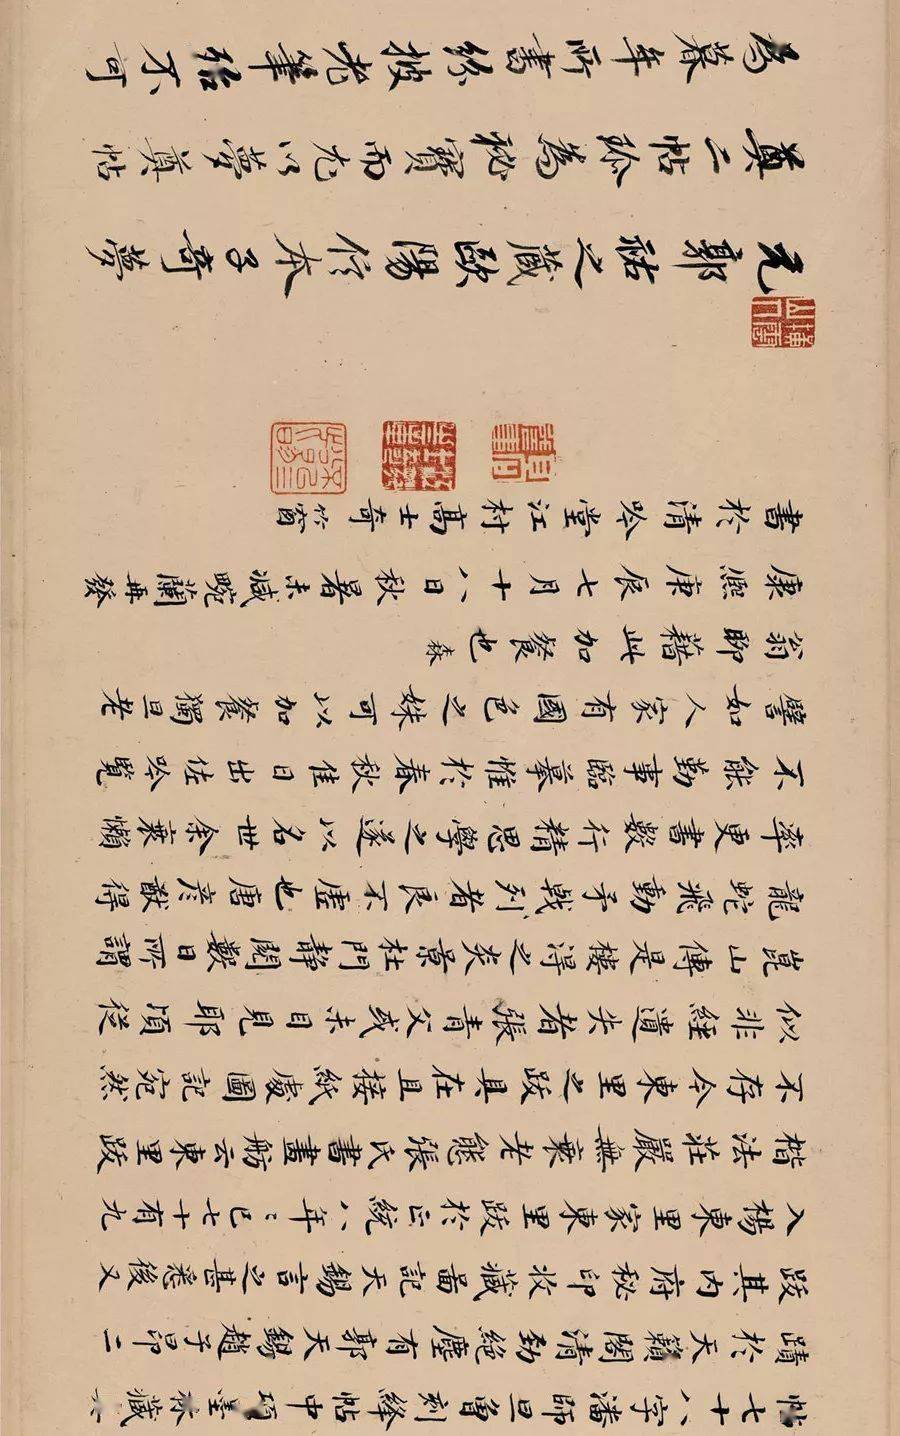 帖七十八字潘師旦曾刻絳帖中項墨林藏
蹟於天籟閣清勁絕塵有郭天錫趙子昂二
跋其內府秘印收藏圖記天錫言之甚悉後又
入楊東里家東里跋於正統八年〻已七十有九
楷法莊嚴無老衰態張氏書畫舫云東里跋
不存今東里之跋具在且接紙處圖記宛然
似非經遺失者張青父或未目見耶頃從
崑山傳是樓得之炎景杜門靜閱數日所謂
龍蛇飛動矛戟列者良不虛也唐彥猷得
率更書數行精思學之遂以名世余衰懶
不能勤事臨摹惟於春秋佳日出佐吟覽
譬如人家有國色之姝可以加餐獨旦老
翁聊藉此加餐也森
康熙庚辰七月十八日秋暑未減畹蘭再發
書於清吟堂江村高士奇竹窗
元郭祐之藏歐陽信本子奇夢
奠二帖珍為秘寶而尤以夢奠帖
為暮年所書終披老筆殆不可